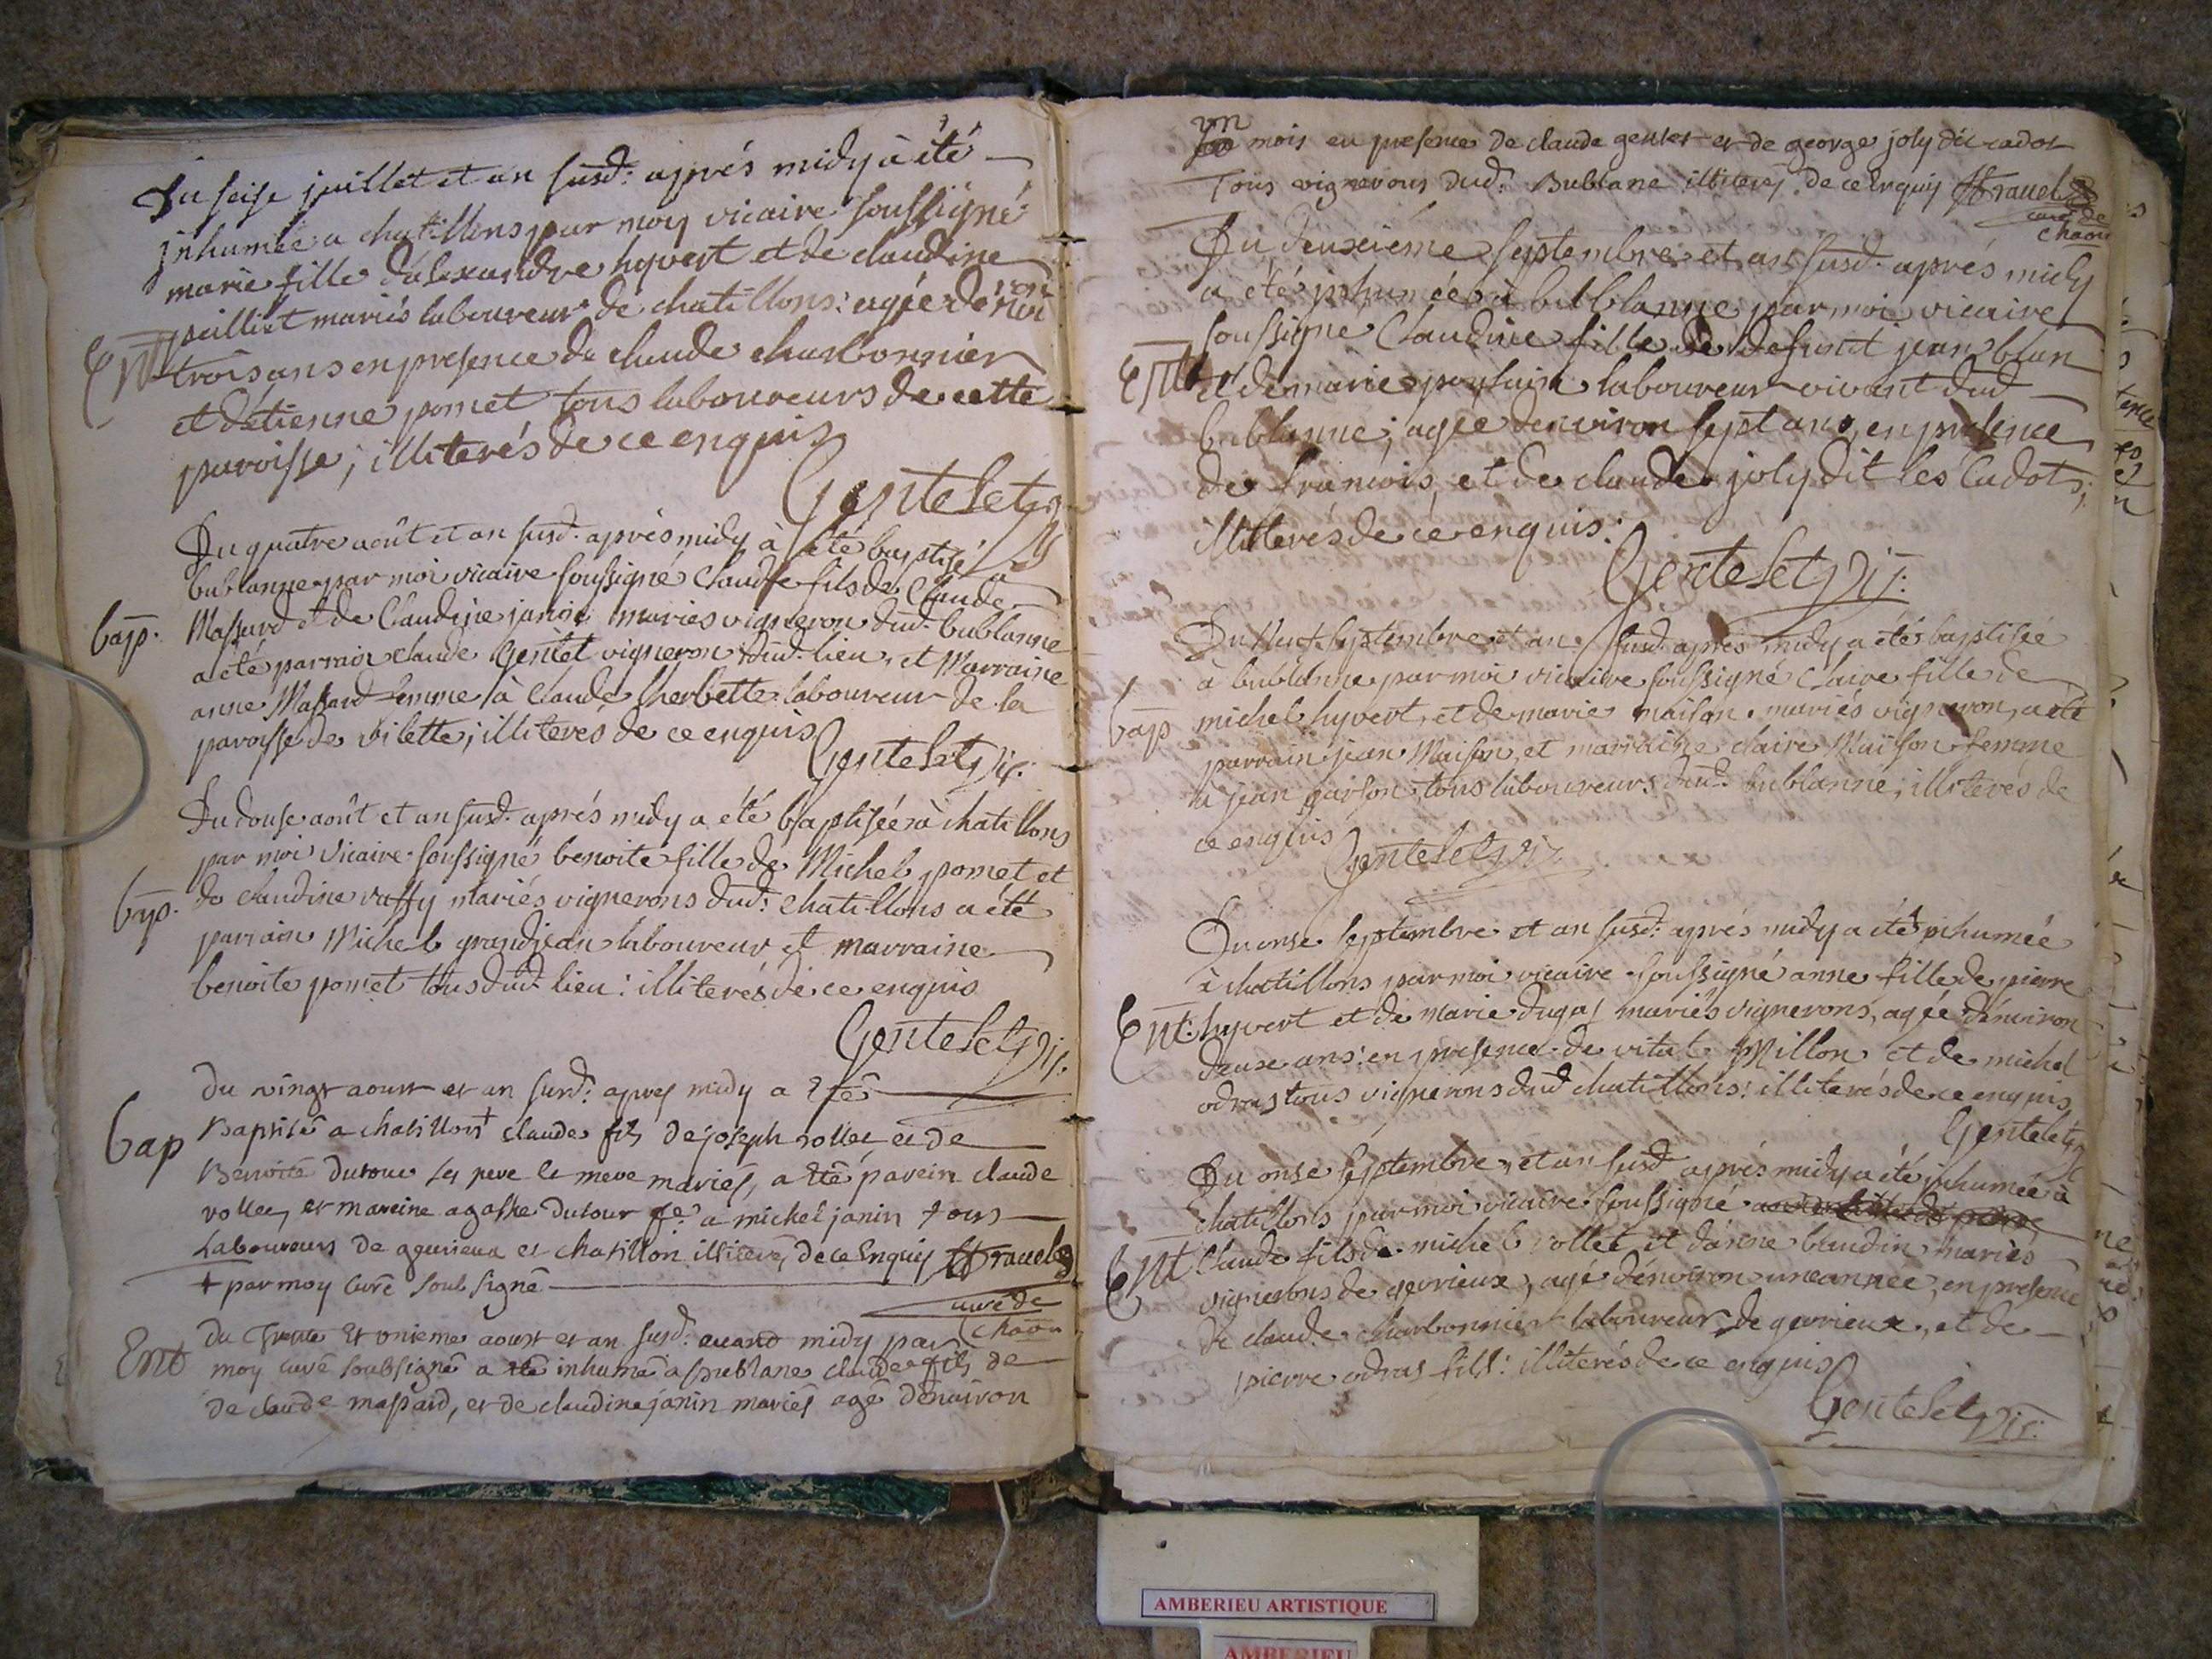 Du seise juillet et an susd. aprés midy à été
inhumée a chatillons par moy vicaire soussigné
marie fille d'alexandre hyvert et de claudine
peilliet mariés laboureur de chatillons: agée d'envi
ron
Ent trois ans en presence de claude charbonnier
et d'etienne pomet tous laboureurs de cette
paroisse; illiterés de ce enquis
Gentelet
Du quatre août et an susd. aprés midy à été baptisé a
bublanne par moi vicaire soussigné Claude fils de Claude
bap. Massard et de Claudine janin mariés vigneron dud. bublanne
a été parrain claude Gentet vigneron dud. lieu, et Marraine
anne Massard femme à Claude Sherbette laboureur de la
paroisse de vilette; illiterés de ce enquis
Gentelet Vic.
Du douse août et an susd. aprés midy a été baptisée à chatillons
par moi vicaire soussigné benoite fille de Michel pomet et
bap. de claudine ruffy mariés vignerons dud: chatillons a été
parrain Michel grandjean laboureur et marraine
benoite pomet tous dud. lieu: illiterés de ce enquis
Gentelet Vic.
Du vingt aoust et an susd: apres midy a eté
bap Baptisé a chatillon + claude fils de joseph vollet et de
Benoite dutour ses pere et mere mariés, a eté parein claude
vollet, et mareine agathe dutour fe. a michel janin tous
Laboureurs de gevrieux et chatillon illiterés de ce Enquis
+ par moy curé soubsigné
curé de
chaon
Ent du Trente Et onieme aoust et an susd: avant midy par
moy curé soubsigné a eté inhumé a publane claude fils de
de claude massard, et de claudine janin mariés agé d'environ
un mois en presence de claude gentet et de george joly dit cadot
Tous vignerons dud. Bublane illiterés de ce Enquis
curé de
chaon
Du deuxiéme septembre et an susd. aprés midy
a été inhumée à bublanne par moi vicaire
soussigné Claudine fille de defunt jean blan
Ent et de marie poulain laboureur vivant dud
bublanne; agée d'environ sept ans, en presence
de francois, et de claude joly dit les Cadots;
illiterés de ce enquis:
Gentelet Vic:
Du neuf septembre et an susd. aprés midy a été baptisée
à bublanne par moi vicaire soussigné Claire fille de
bap michel hyvert, et de marie maison mariés vigneron, a été
parrain jean Maison, et marraine claire Maison femme
à jean parson, tous laboureurs dud. bublanne; illiterés de
ce enquis Gentelet Vic.
Du onse septembre et an susd: aprés midy a été inhumée
à chatillons par moi vicaire soussigné anne fille de pierre
Ent: hyvert et de marie dugas mariés vignerons, agée d'environ
deuse ans: en presence de vital Millon et de michel
odras tous vignerons dud chatillons: illiterés de ce enquis
Gentelet
Du onse septembre, et an susd aprés midy a été inhumée à
chatillons par moi vicaire soussigné
Ent Claude fils de michel vollet et d'anne baudin mariés
vignerons de gevrieux, agé d'environ une année, en presence
de claude charbonnier laboureur de gevrieux, et de
pierre odras fils: illiterés de ce enquis
Gentelet Vic:
AMBERIEU ARTISTIQUE
AMBERIEU